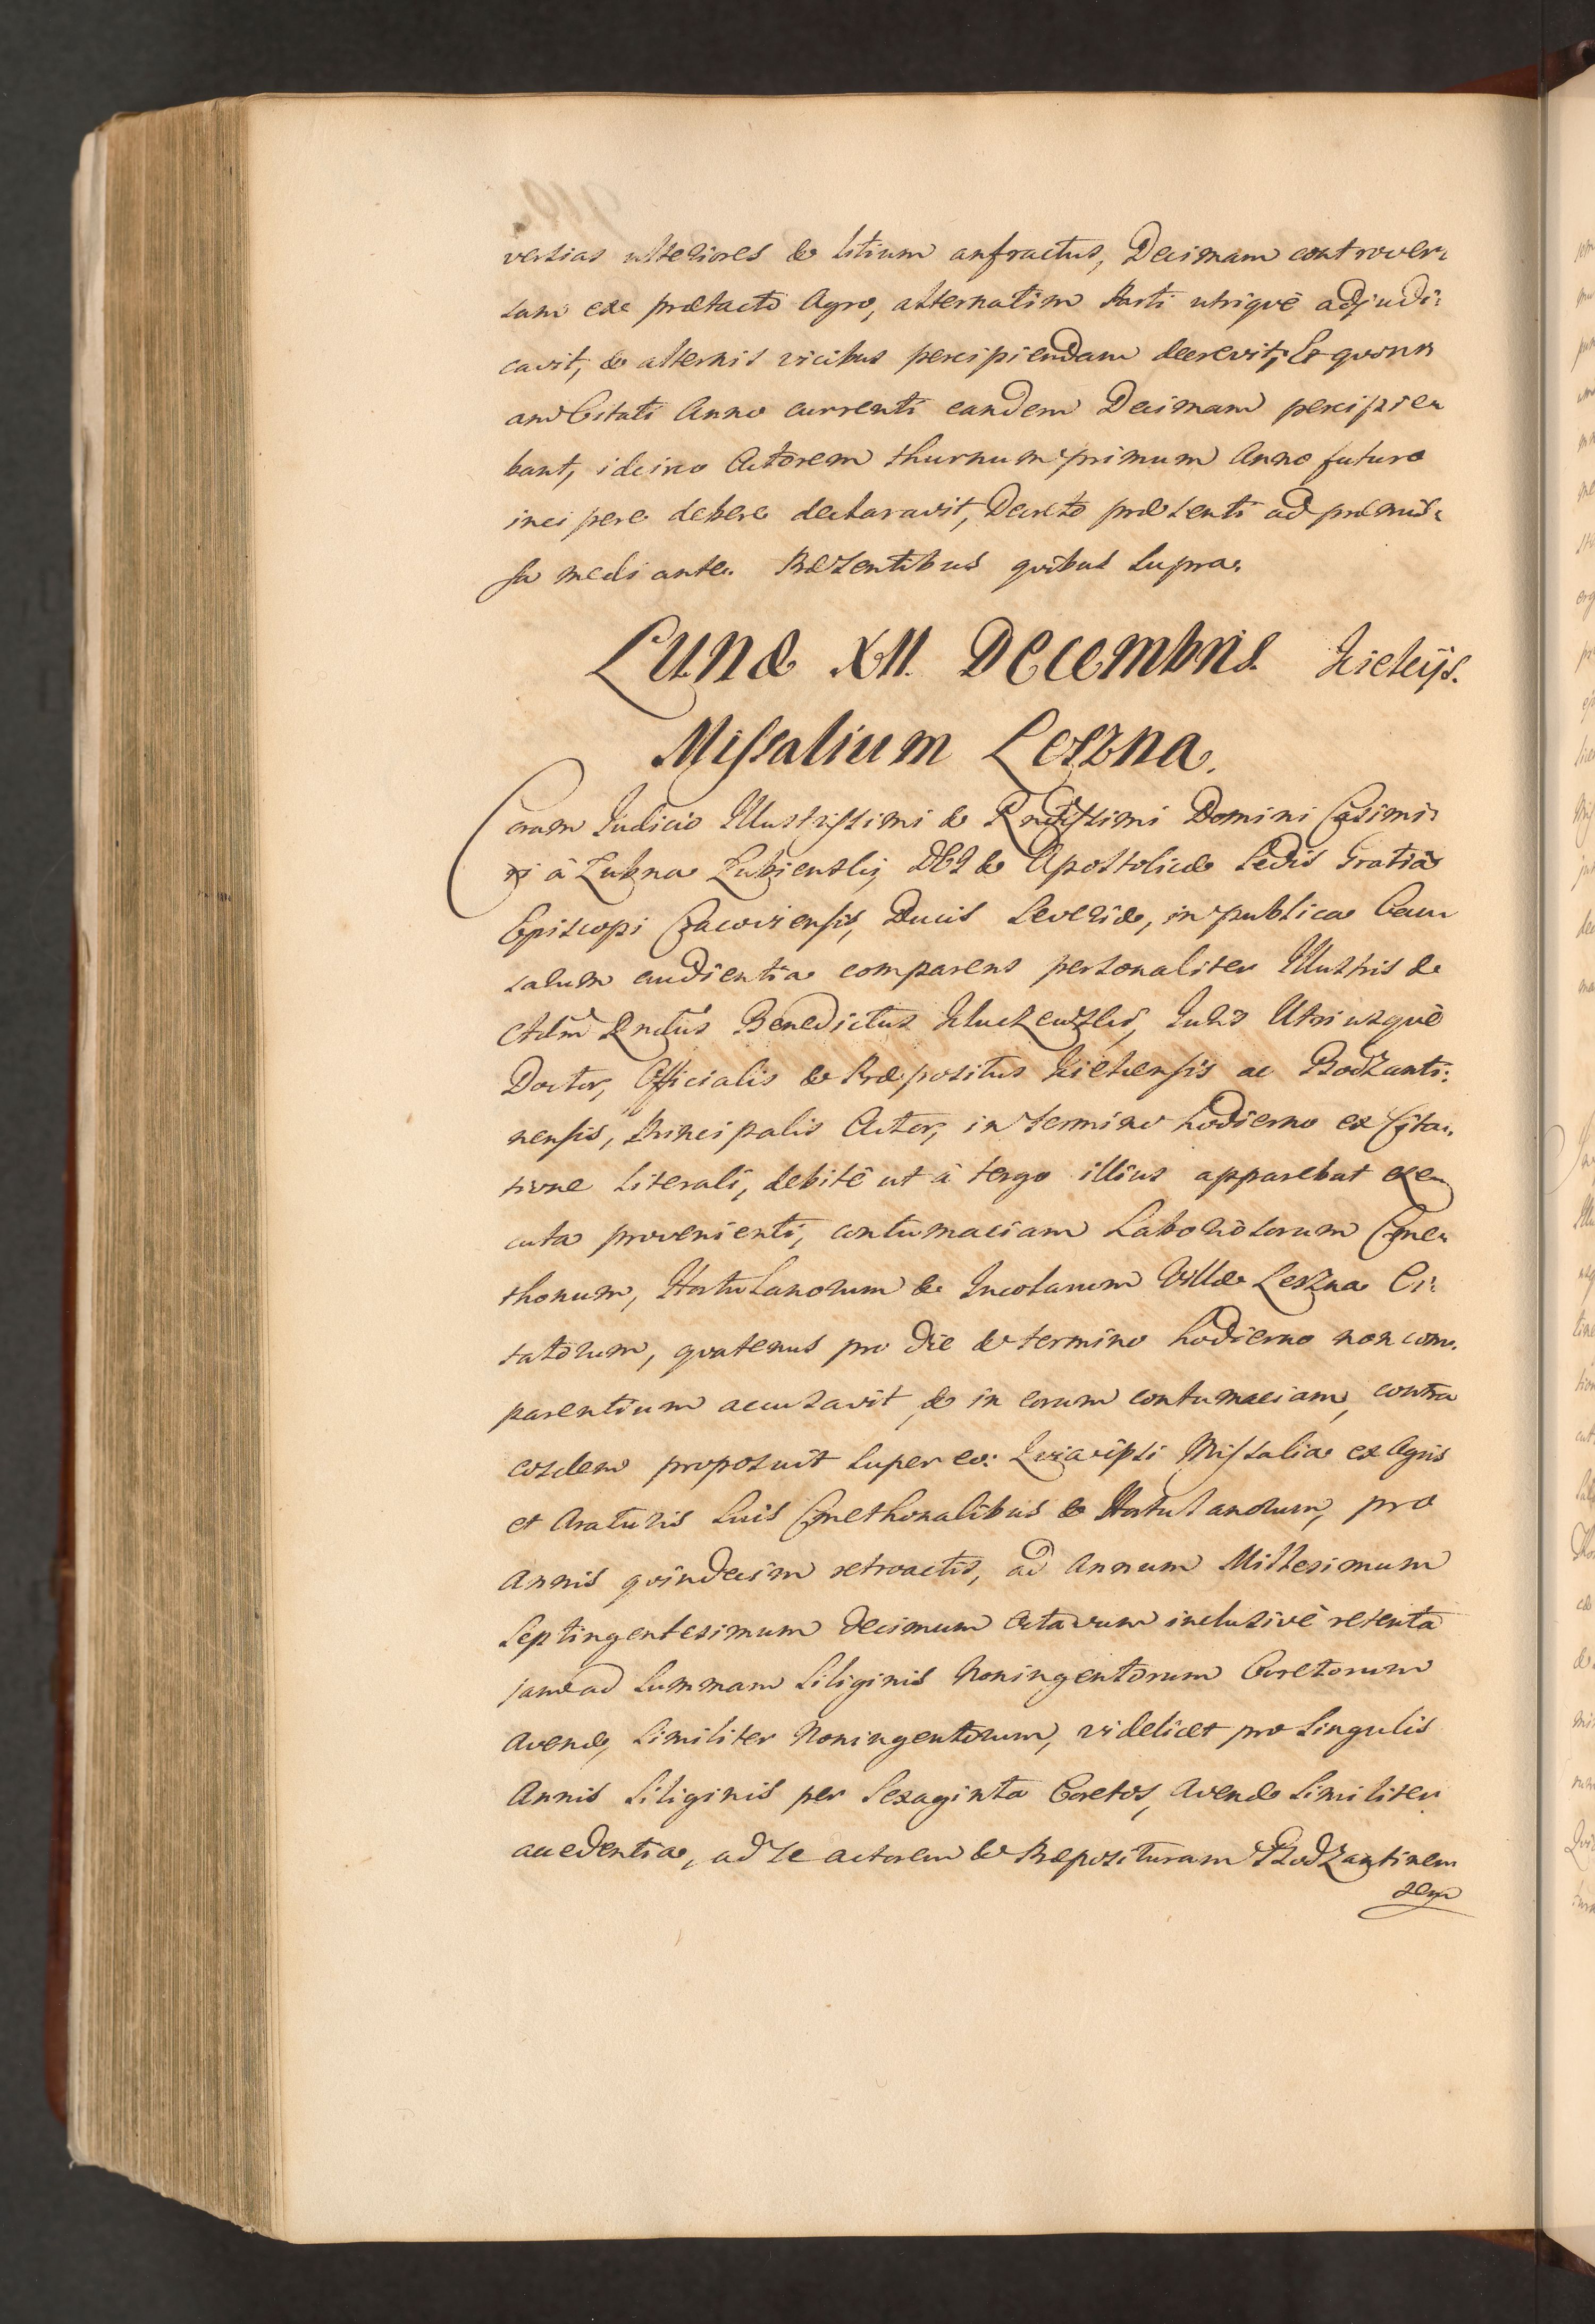 versias ulteriores & litium anfractus, Decimam controver:
sam ex prætacto Agro, alternatim Parti utriqvè adjudi:
cavit, & alternis vicibus percipiendam decrevit, Et qvon
am Citati Anno currenti eandem Decimam percipie
bant, idcirco Actorem thurnum primum Anno futuro
incipere debere declaravit, Decreto præsenti ad præmis:
sa mediante. Præsentibus qvibus supra.
Lunæ XII. Decembris. Kielcijs.
Missalium Leszna.
Coram Judicio Illustrissimi & Rndissimi Domini Casimi:
ri à Łubna Łubienski, DEI & Apostolicæ Sedis Gratiâ
Episcopi Cracoviensis, Ducis Severiæ, in publica Cau
sarum audientia comparens personaliter Illustris &
Adm Rndus Benedictus Kluczewski, Juris Utriusqvè
Doctor, Officialis & Præpositus Kielcensis ac Bodzanti:
nensis, Principalis Actor, in termino hodierno ex Cita:
tione literali, debitè ut à tergo illius apparebat exe
cuta provenienti, contumaciam Laboriosorum Cme
thonum, Hortulanorum & Incolarum Villæ Leszna Ci:
tatorum, qvatenus pro die & termino hodierno non com:
parentium accusavit & in eorum contumaciam, contra
eosdem proposuit super eo: Qvia ipsi Missalia ex Agris
et Araturis suis Cmethonalibus & Hortulanorum, pro
Annis qvindecim retroactis, ad Annum Millesimum
Septingentesimum decimum octavum inclusivè retenta
jam ad summam Siliginis Noningentorum Coretorum
Avenæ, similiter Noningentorum, videlicet pro singulis
Annis Siliginis per Sexaginta Coretos, Avenæ similiter
accedentia, ad se actorem & Præposituram Bodzantinen
sem